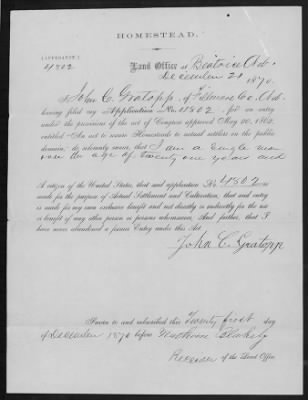 HOMESTEAD.
[AFFIDAVIT.]
4802
Land Office at Beatrice Neb.
December 21 1870.
I, John C. Gratopp, of Filmore Co. Neb.
having filed my Application No. 4802, for an entry
under the provisions of the act of Congress approved May 20, 1862,
entitled "An act to secure Homesteads to actual settlers on the public
domain," do solemnly swear, that I am a single man
over an age of twenty one years and
A citizen of the United States, that said application No. 4802 is
made for the purpose of Actual Settlement and Cultivation, that said entry is
made for my own exclusive benefit and not directly or indirectly for the use
or benefit of any other person or persons whomsoever. And further, that I
have never abandoned a former Entry under this Act.
John C. Gratopp
Sworn to and subscribed this Twenty first day
of December 1870 before
Receiver of the Land Office.